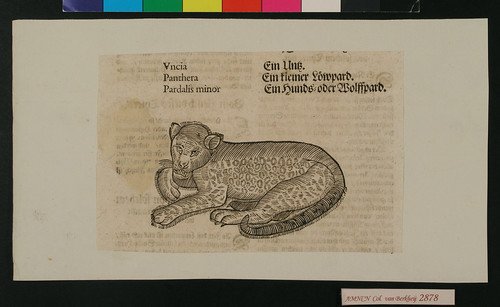 Vncia
Panthera
Pardalis minor
Ein Untz.
Ein kleiner Löwpard.
Ein Hunds/oder Wolffpard.
AMNCN Col. van Berkheij 2878